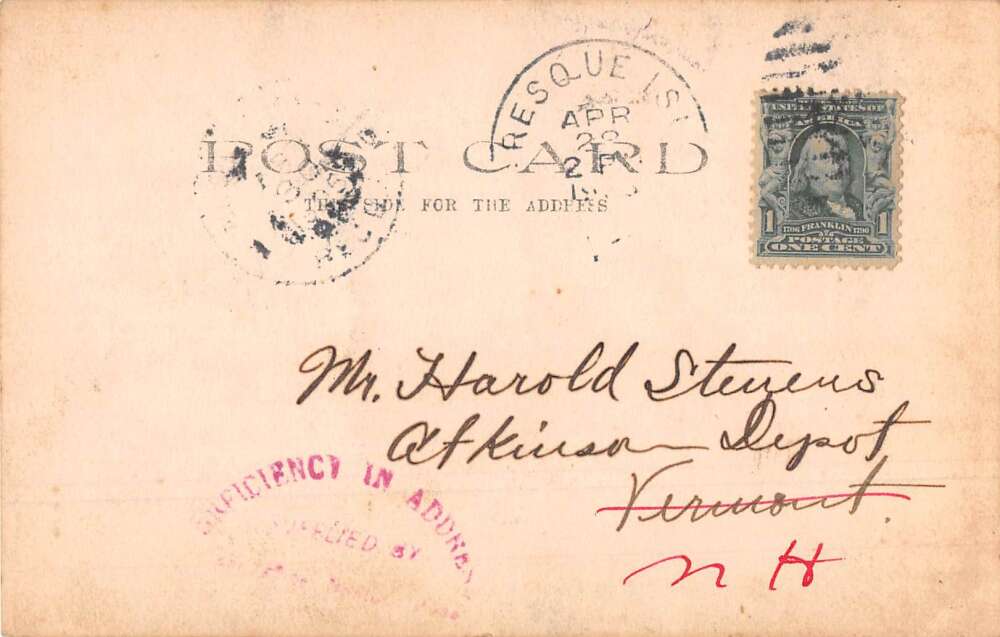 PRESQUE ISL
APR
2 P
POST CARD
THIS SIDE FOR THE ADDRESS
UNITED STATES OF
AMERICA
1 1706 FRANKLIN 1790 1
POSTAGE
ONE CENT
Mr. Harold Stevens
Atkinson Depot
Vermont.
N H
DEFICIENCY IN ADDRESS
SUPPLIED BY